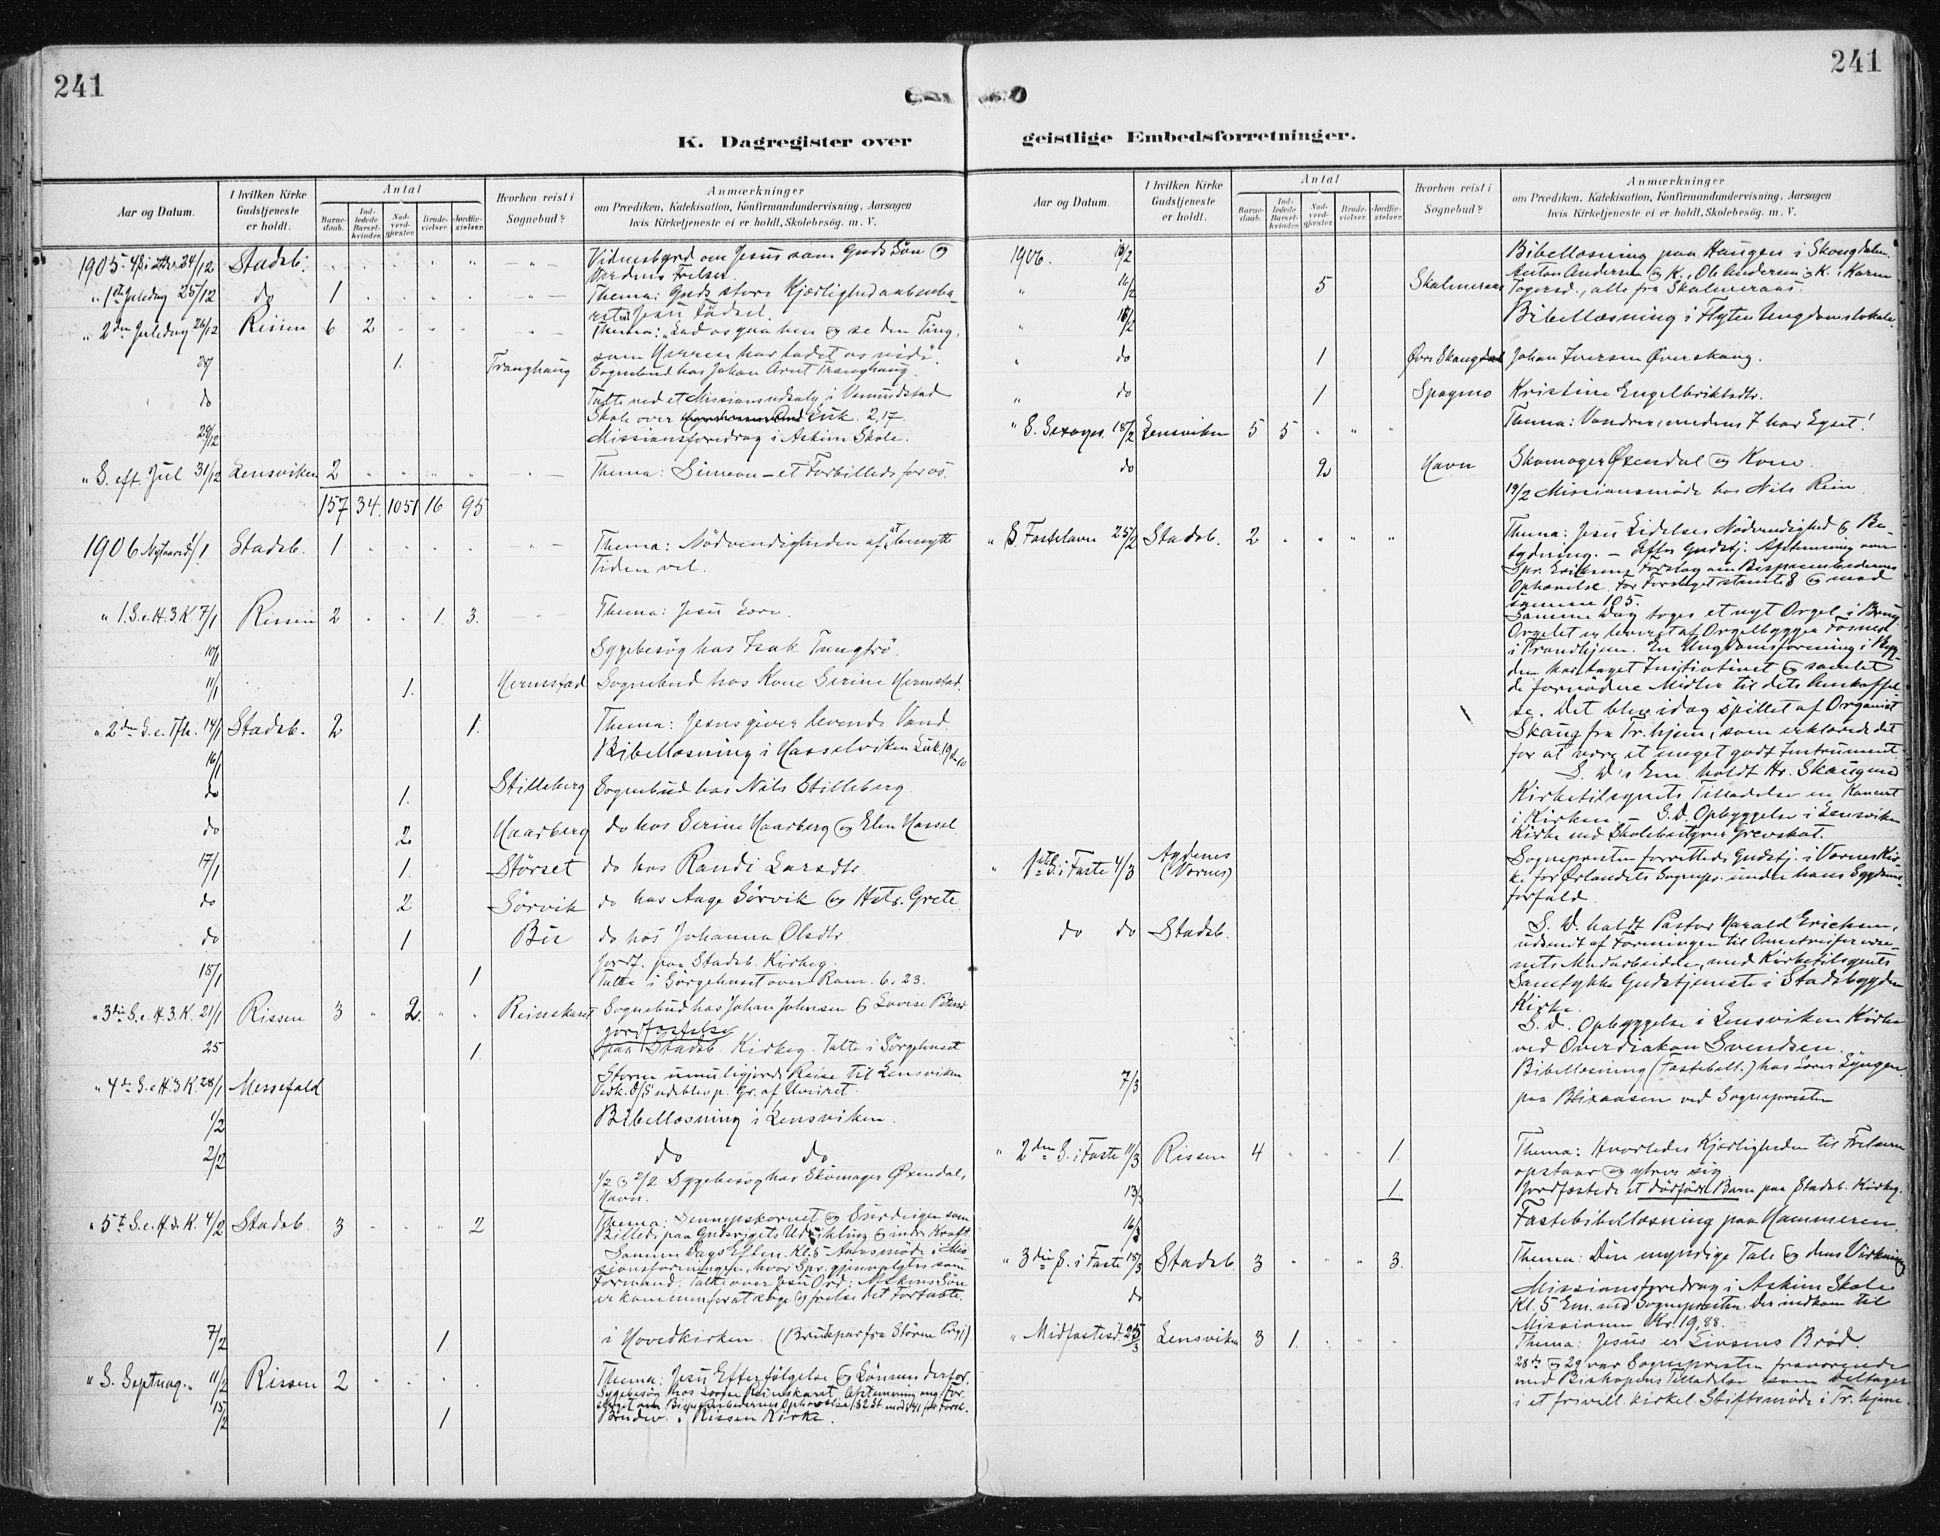 241
241
K. Dagregister over geistlige Embedsforretninger.
Aar og Datum.
I hvilken Kirke Gudstjeneste er holdt.
Antal
Barnedaab.
Indledede Barselkvinder.
Nadverdgjæster.
Brudevielser.
Jordfæstelser.
Hvorhen reist i Sognebud?
Anmærkninger
om Prædiken, Katekisation, Konfirmandundervisning, Aarsagen
hvis Kirketjeneste ei er holdt, Skolebesøg. m. V.
1905 24/12 Stadsb. Vidnesbyrd om Jesus som Guds Søn og
Verdens Frelser.
" 1st Juledag 25/12 do 1 Thema: Guds store Kjærlighed aabenba-
ret i Jesu Fødsel.
" 2den Juledag 26/12 Rissen 6 2 Thema: Lad os gaa hen og se den Ting,
som Herren har ladet os vide.
1. Tranghaug Sognebud hos Johan Arnt Tranghaug.
do Talte ved et Missionsudsalg i Vemundstad
Skole over Luk. 2,17
29/12 Missionsforedrag i Askim Skole.
" S. eft. Jul 31/12 Lensviken 2 Thema: Simeon - et Forbillede for os.
157 34 1051 16 95
1906 Nytaarsd. 1/1 Stadsb. 1 Thema: Nödvendigheden af at benytte
Tiden vel.
" 1. S. e. H. 3 K. 7/1 Rissen 2 1. 3. Thema: Jesu Lære.
10/1 Sygebesøg hos Isak Tungtrö.
11/1 1. Hermstad Sognebud hos Kone Serine Hermstad.
" 2den S. e. 14/1 Stadsb. 2 1. Thema: Jesus giver levende Vand.
16/1 Bibellæsning i Hasselviken Luk. 19,1-10
do 1. Stilleberg Sognebud hos Nils Stilleberg.
do 2 Haarberg do hos Serine Haarberg og Elen Hassel.
17/1 1. Störset do hos Randi Larsdtr.
do 2 Sörvik do hos Aage Sörvik og Hstr. Grete
do 1 Bue do hos Johanna Olsdtr.
18/1 1 Jordf. paa Stadsb. Kirkeg.
Talte i Sørgehuset over Rom. 6. 23.
" 3die S. e. H. 3. K. 21/1 Rissen 3 2. Reinskaret Sognebud hos Johan Johnsen & Lovise Peters
25 1. Jordfæstelse
paa Stadsb. Kirkeg. Talte i Sørgehuset
" 4de S. e. H. 3 K. 28/1 Messefald Storm umuliggjorde Reise til Lensviken.
udeblev p. Gr. af Uveiret.
1/2 Bibellæsning i Lensviken.
2/2 do do
1/2 & 2/2 Sygebesøg hos Skomager Øxendal,
Havn.
" 5te S. e. H. 3. K. 4/2 Stadsb. 3 2 Thema: Sennepskornet og Surdeigen som
Billede paa Gudsrigets Udvikling & indre Kraft.
Samme Dags Eften. Kl. 5 Aarsmöde i Mis-
sionsforeningen, hvor Spr. gjenvalgtes som
Formand. Talte over Jesu Ord: Meskens Søn
er kommen for at søge og frelse det Fortabte.
7/2 1 i Hovedkirken. (Brudepar fra Stören Prgj.)
" S. Septuag. 11/2 Rissen 2 Thema: Jesu Efterfølgelse og Lønnen derfor.
Sygebesøg hos Reinskaret. Afstemning ang. For-
slaget om Bispeembedernes Ophævelse
15/2 1 Brudev. i Rissen Kirke.
Aar og Datum.
I hvilken Kirke Gudstjeneste er holdt.
Antal
Barnedaab.
Indledede Barselkvinder.
Nadverdgjæster.
Brudevielser.
Jordfæstelser.
Hvorhen reist i Sognebud?
Anmærkninger
om Prædiken, Katekisation, Konfirmandundervisning, Aarsagen
hvis Kirketjeneste ei er holdt, Skolebesøg. m. V.
1906. Bibellæsning paa Haugen i Skaugdalen.
" 16/2 5 Skalmeraas Anton Andersen og K., Ole Andersen og K., Karen
alle fra Skalmeraas.
" Bibellæsning i Flyten Ungdomslokale.
" do 1 Øvre Skaugdal Johan Iversen Øverskaug.
" do 1 Spagmo Kristine Engelbriktsdtr.
" S. Sexages. 18/2 Lensviken 5 5 Thema: Vandrer, medens I har Lyset!
do 2 Havn Skomager Øxendal og Kone.
19/2 Missionsmöde hos Nils Rein
" S. Fastelavn 25/2 Stadsb. 2 Thema: Jesu Lidelses Nödvendighed & Be-
tydning. - Efter Gudstj. Afstemning over
Spr. Eriksens Forslag om Bispeembedernes
Ophævelse. For Forslaget stemte 8 & mod
samme 105.
Samme Dag toges et nyt Orgel i Brug.
Orgelet er leveret af Orgelbygger
i Trondhjem. En Ungdomsforening i Byg-
den har taget Initiativet & samlet
de fornödne Midler til dets Anskaffel-
se. Det blev idag spillet af Organist
Skaug fra Tr.hjem, som erklærede det
for at være et meget godt Instrument.
S. D's Em. holdt Hr. Skaug med
Kirketilsynets Tilladelse en Koncert
i Kirken. - S. D. Opbyggelse i Lensviken
Kirke ved Skolebestyrer Grevskot.
" 1ste S. i Faste 4/3 Agdenes (Vernes) Sognepresten forrettede Gudstj. i Vernes Kir-
ke for Ørlandets Sognepr. under hans Sygdoms-
forfald.
do do Stadsb. S. D. holdt Pastor Harald Erichsen,
udsendt af Foreningen til
nets Modarbeidelse, med Kirketilsynets
Samtykke Gudstjeneste i Stadsbygden
Kirke.
S. D. Opbyggelse i Lensviken Kirke
ved Overdiakon Svendsen.
7/3 Bibellæsning (Fastebett.) hos
paa Blixaasen ved Sognepresten
" 2den S. i Faste 11/3 Rissen 4 1. Thema: Hvorledes Kjærligheden til Frelseren
opstaar og ytrer sig
13/3 1 Jordfæstede et dødfødt Barn paa Stadsb. Kirkeg.
16/3 Fastebibellæsning paa Hammeren.
" 3die S. i Faste 18/3 Stadsb. 3 3. Thema: Den myndige Tale og dens Virkning
do Missionsforedrag i Askim Skole
Kl. 5 Em. ved Sognepresten. Der indkom til
Missionen Kr. 19,88.
" Midfastesd. 25/3 Lensviken 3 1. Thema: Jesus er Livsens Bröd.
28de og 29 var Sognepresten fraværende
med Biskopens Tilladelse som Deltager
i et frivill. kirkel. Stiftsmöde i Tr.hjem.